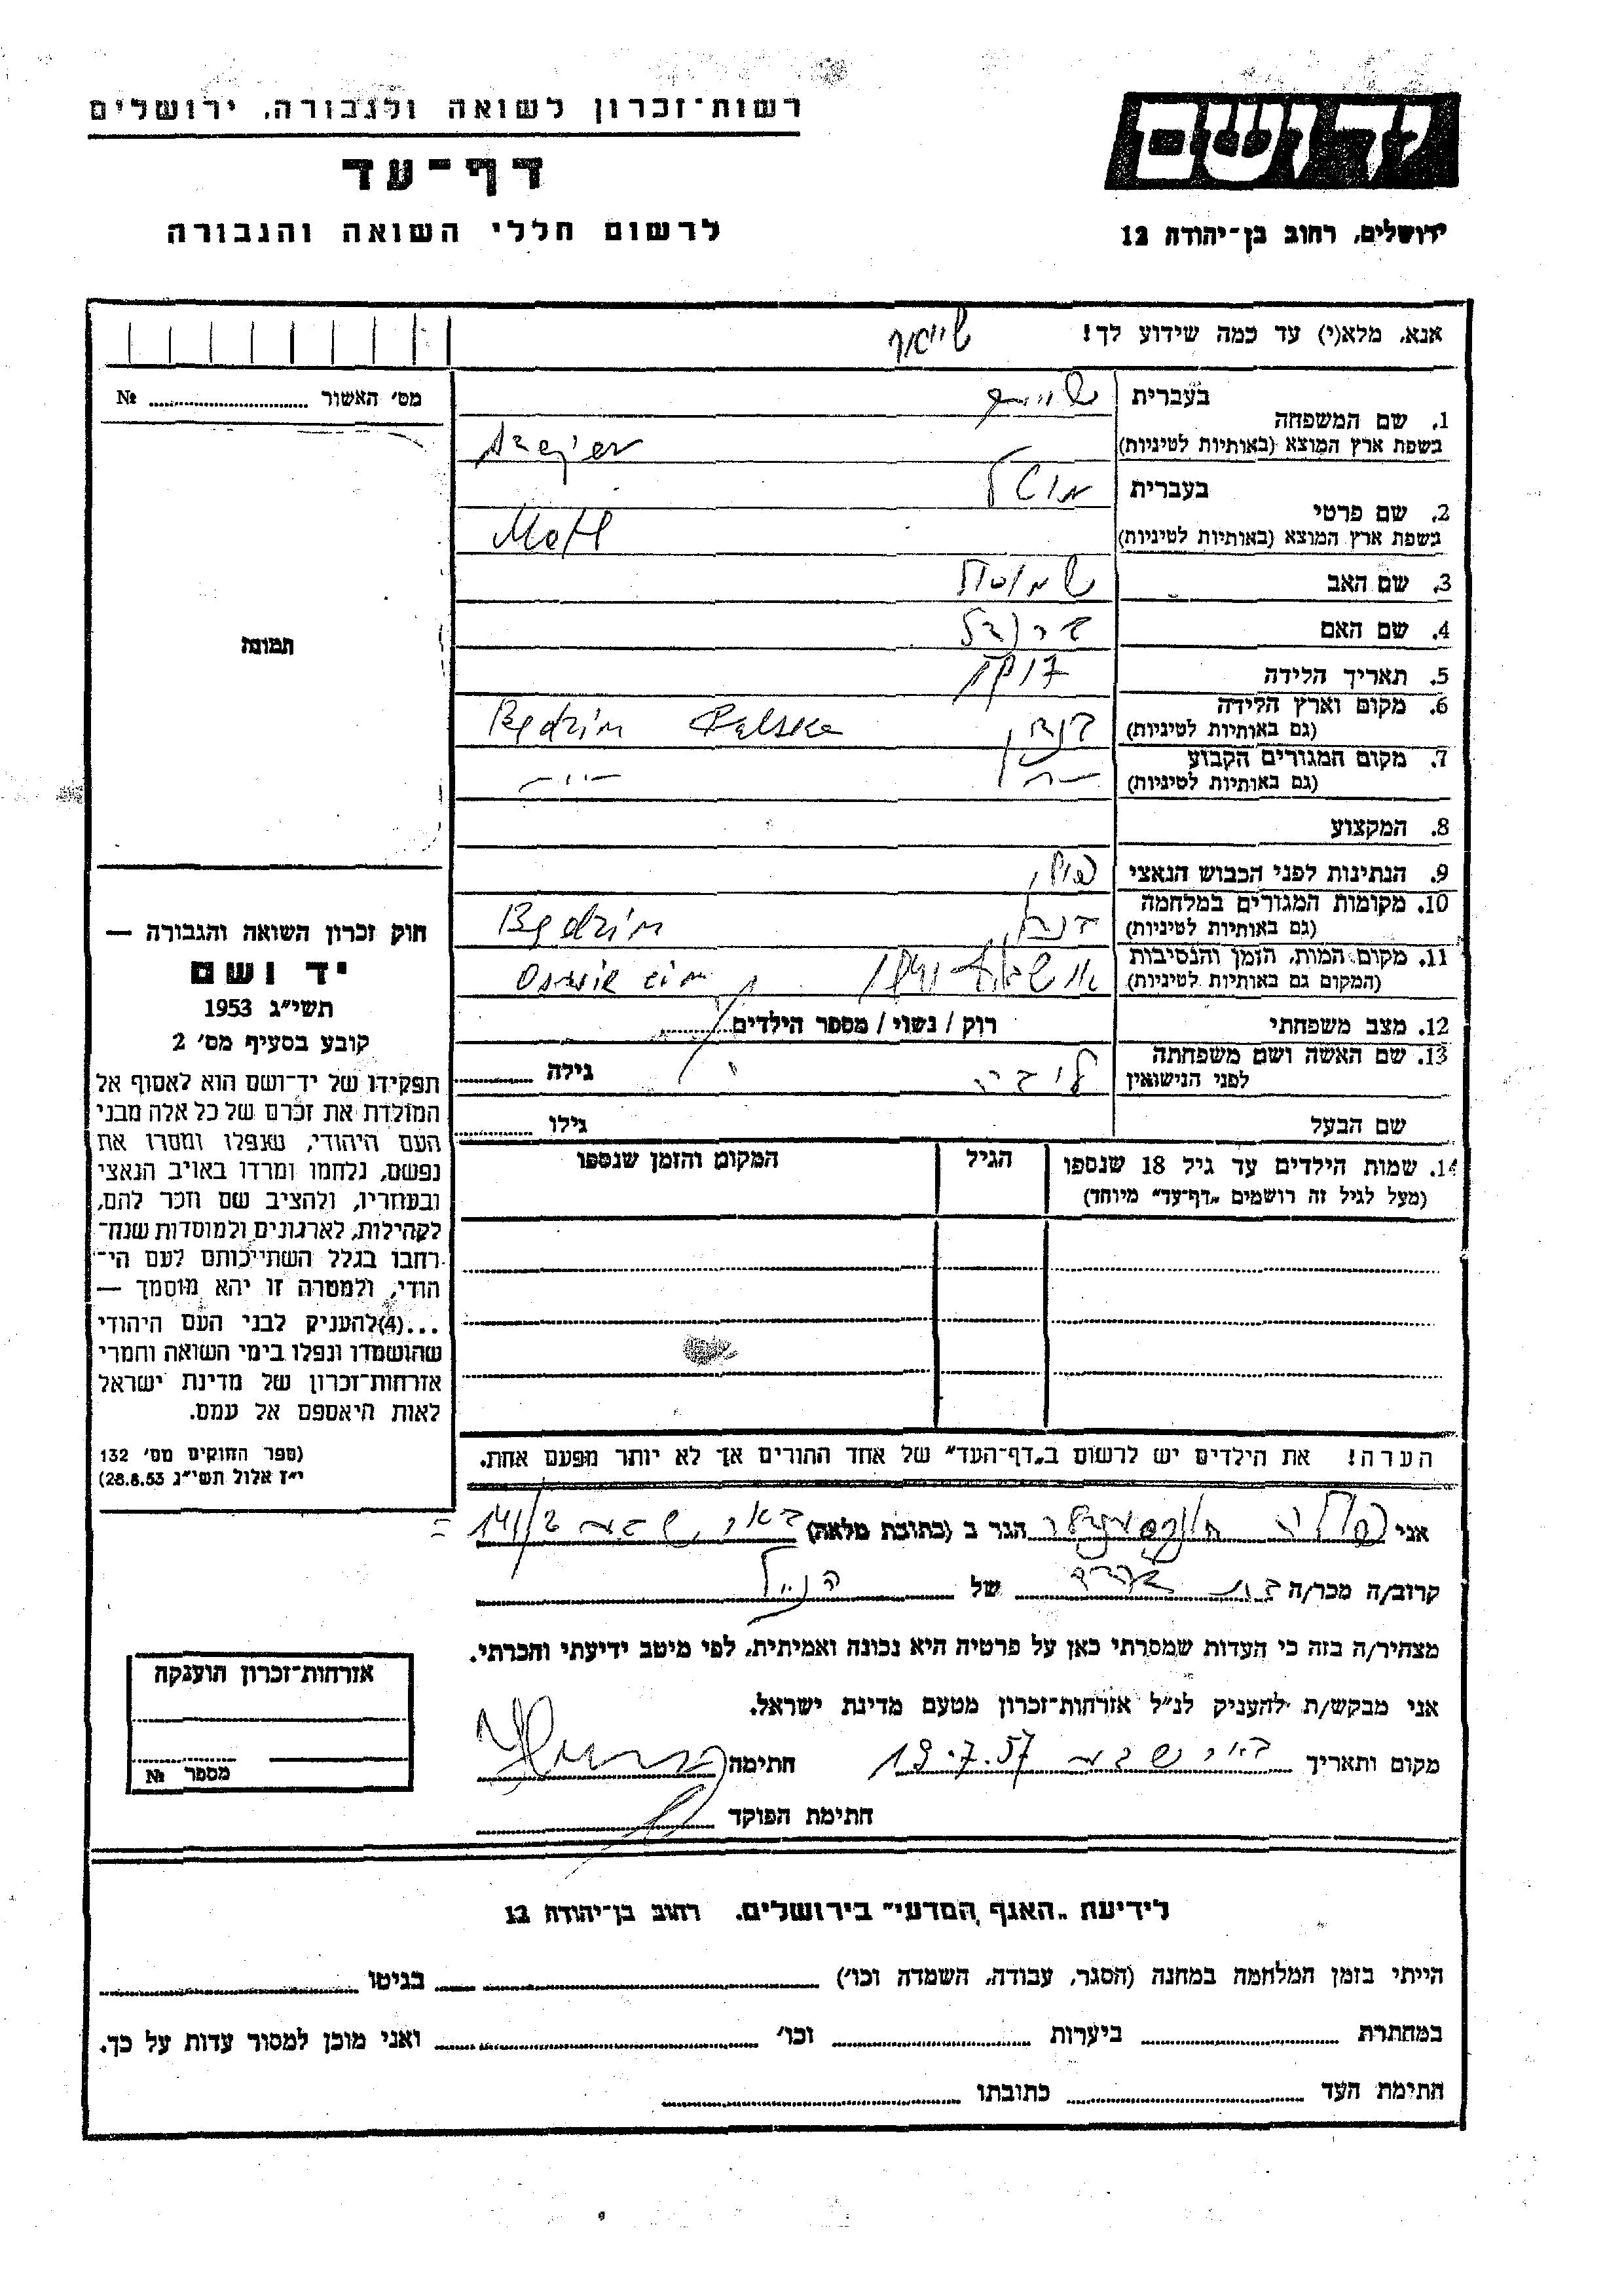 רשות־זכרון לשואה ולגבורה, ירושלים
דף־עד
לרשום חללי השואה והגבורה
יד ושם
ירושלים, רחוב בן־יהודה 12
אנא, מלא(י) עד כמה שידוע לך!
בעברית
1. שם המשפחה
בשפת ארץ המוצא (באותיות לטיניות) Szejer
בעברית מוטל
2. שם פרטי
בשפת ארץ המוצא (באותיות לטיניות) Motl
3. שם האב
4. שם האם
5. תאריך הלידה
6. מקום וארץ הלידה
(גם באותיות לטיניות) Będzin Polska
7. מקום המגורים הקבוע
(גם באותיות לטיניות) —״—
8. המקצוע
9. הנתינות לפני הכבוש הנאצי
10. מקומות המגורים במלחמה
(גם באותיות לטיניות) Będzin
11. מקום המות, הזמן והנסיבות
(המקום גם באותיות לטיניות)
12. מצב משפחתי רוק / נשוי / מספר הילדים
13. שם האשה ושם משפחתה
לפני הנישואין גילה
שם הבעל גילו
14. שמות הילדים עד גיל 18 שנספו הגיל המקום והזמן שנספו
(מעל לגיל זה רושמים „דף־עד״ מיוחד)
הערה! את הילדים יש לרשום ב„דף־העד״ של אחד ההורים אך לא יותר מפעם אחת.
מס׳ האשור №
תמונה
חוק זכרון השואה והגבורה —
יד ושם
תשי״ג 1953
קובע בסעיף מס׳ 2
תפקידו של יד־ושם הוא לאסוף אל
המולדת את זכרם של כל אלה מבני
העם היהודי, שנפלו ומסרו את
נפשם, נלחמו ומרדו באויב הנאצי
ובעוזריו, ולהציב שם וזכר להם,
לקהילות, לארגונים ולמוסדות שנח־
רבו בגלל השתייכותם לעם הי־
הודי, ולמטרה זו יהא מוסמך —
...(4) להעניק לבני העם היהודי
שהושמדו ונפלו בימי השואה והמרי
אזרחות־זכרון של מדינת ישראל
לאות היאספם אל עמם.
(ספר החוקים מס׳ 132
י״ז אלול תשי״ג 28.8.53)
אני הגר ב (כתובת מלאה) באר שבע
קרוב/ה מכר/ה של הנ״ל
מצהיר/ה בזה כי העדות שמסרתי כאן על פרטיה היא נכונה ואמיתית, לפי מיטב ידיעתי והכרתי.
אני מבקש/ת להעניק לנ״ל אזרחות־זכרון מטעם מדינת ישראל.
מקום ותאריך באר שבע 19.7.57 חתימה
חתימת הפוקד
אזרחות־זכרון הוענקה
מספר №
לידיעת „האגף המדעי״ בירושלים, רחוב בן־יהודה 12
הייתי בזמן המלחמה במחנה (הסגר, עבודה, השמדה וכו׳) בגיטו
במחתרת ביערות וכו׳ ואני מוכן למסור עדות על כך.
חתימת העד כתובתו